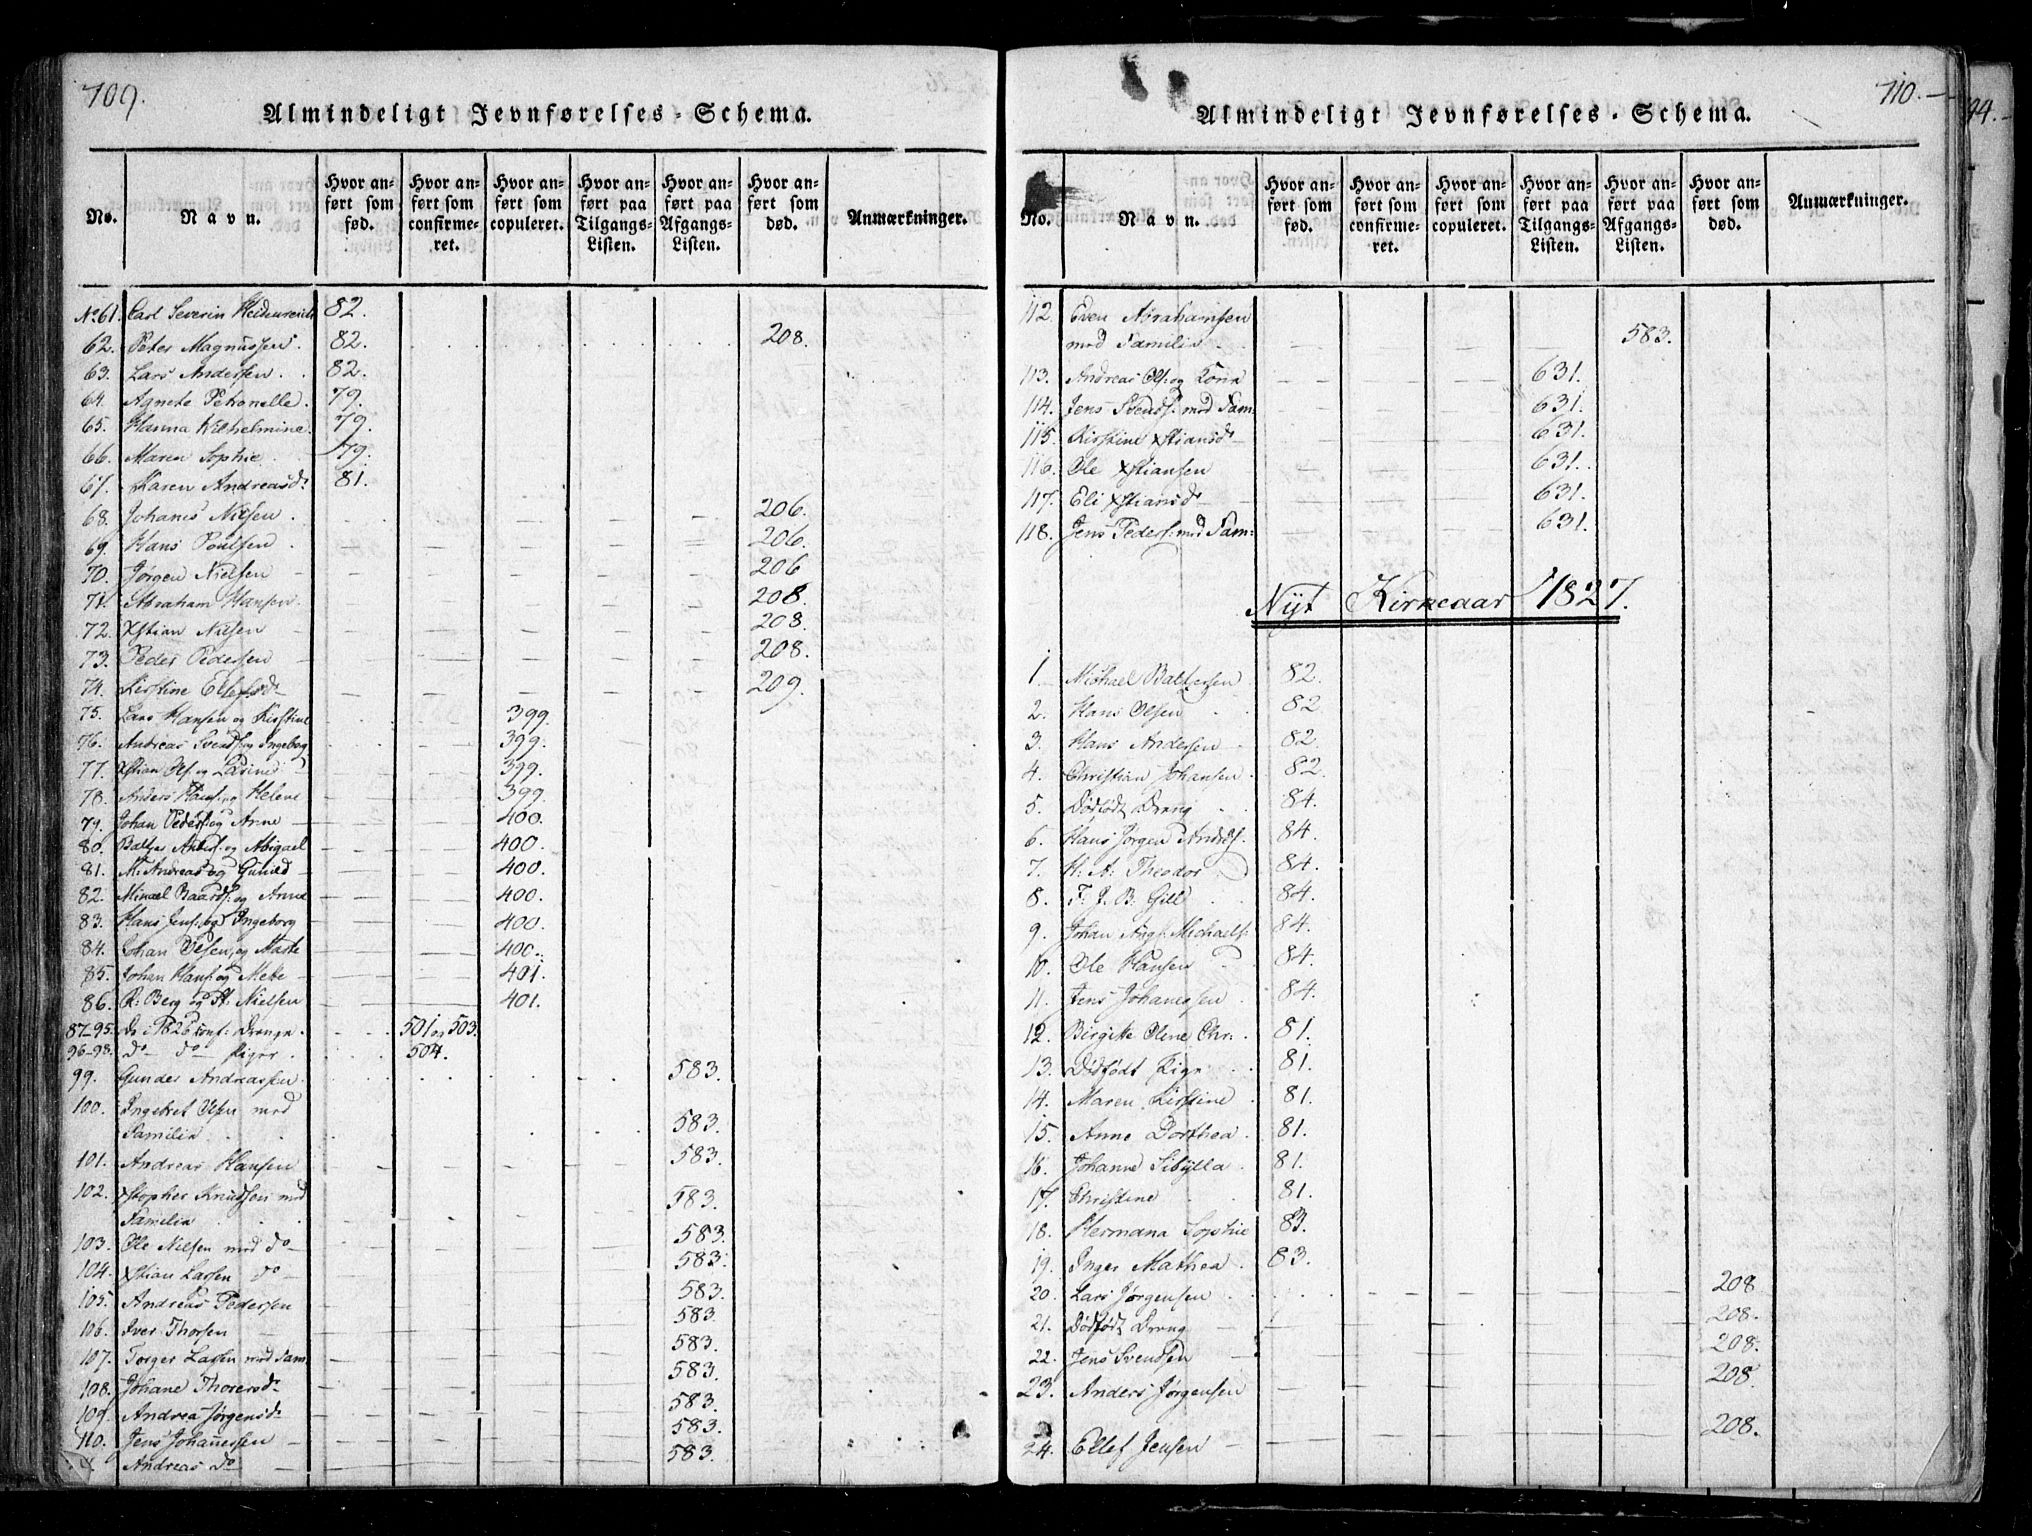 709.
Almindeligt Jevnførelses-Schema.
No.
Navn.
Hvor anført som fød.
Hvor anført som confirmeret.
Hvor anført som copuleret.
Hvor anført paa Tilgangs-Listen.
Hvor anført paa Afgangs-Listen.
Hvor anført som død.
Anmærkninger.
No. 61. Carl Severin Heidenreich 82.
62. Peter Magnussen. 82. 208.
63. Lars Andersen. 82.
64. Agnete Petronelle. 79.
65. Hanna Wilhelmine. 79.
66. Maren Sophie. 79.
67. Karen Andreasd. 81.
68. Johanes Nilsen. 206.
69. Hans Poulsen. 206.
70. Jørgen Nielsen 206
71. Abraham Hansen. 208.
72. Xstian Nilsen 208.
73. Peder Pedersen 208.
74. Kirstine 209.
75. Lars Hansen og Kirstine 399.
76. Andreas Svends: og Ingebog 399.
77. Xstian Ols: og 399.
78. Anders Hans: og Helene 399.
79. Johan Peders: og Anne 400.
80. Baltser Anders: og Abigael 400.
81. M: Andreas og Gunild 400.
82. Mikael Baards: og Anne 400.
83. Hans Jens: og Ingeborg 400.
84. Johan Olsen og Marte 400.
85. Johan Hans: og Mette 401.
86. R: Berg og A: Nielsen 401.
87-95. De i 1826 conf: Drenge. 501 og 503.
96-98. do do Piger. 504.
99. Gunder Andreassen. 583.
100. Ingebret Olsen med
Familie 583.
101. Andreas Hansen 583.
102. Xstopher Knudsen med
Familie 583.
103. Ole Nilsen med do 583.
104. Xstian Larsen do 583.
105. Andreas Pedersen 583.
106. Iver Thorsen 583.
107. Torger Larsen med Fam. 583.
108. Johane Thoresd. 583.
109. Andrea Jørgensd. 583.
110. Jens Johannessen 583.
Andreas do 583.
710.
Almindeligt Jevnførelses-Schema.
No.
Navn.
Hvor anført som fød.
Hvor anført som confirmeret.
Hvor anført som copuleret.
Hvor anført paa Tilgangs-Listen.
Hvor anført paa Afgangs-Listen.
Hvor anført som død.
Anmærkninger.
112. Even Abrahamsen
med Familie 583.
113. Andreas Ols: og Kone 631.
114. Jens Svends: med Fam: 631.
115. Kirstine Xstiansd. 631.
116. Ole Xstiansen 631.
117. Eli Xstiansd. 631.
118. Jens Peders: med Fam: 631.
Nyt Kirkeaar 1827.
1. Michael Baltsersen 82.
2. Hans Olsen 82.
3. Hans Andersen 82.
4. Christian Johansen. 82.
5. Dødfødt Dreng 84.
6. Hans Jørgen Anders. 84.
7. H: A: Theodor 84.
8. F. J. B. Gill 84.
9. Johan Aug: Michaels: 84.
10. Ole Hansen 84.
11. Jens Johanessen 84.
12. Birgitte Olene Chr: 81.
13. Dødfødt Pige 81.
14. Maren Kirstine 81.
15. Anne Dorthea. 81.
16. Johanne Sibylla. 81.
17. Christine 81.
18. Hermana Sophie 83.
19. Inger Mathea. 83.
20. Lars Jørgensen 208
21. Dødfødt Dreng 208.
22. Jens Svendsen 208.
23. Anders Jørgensen 208.
24. Ellef Jensen 208.